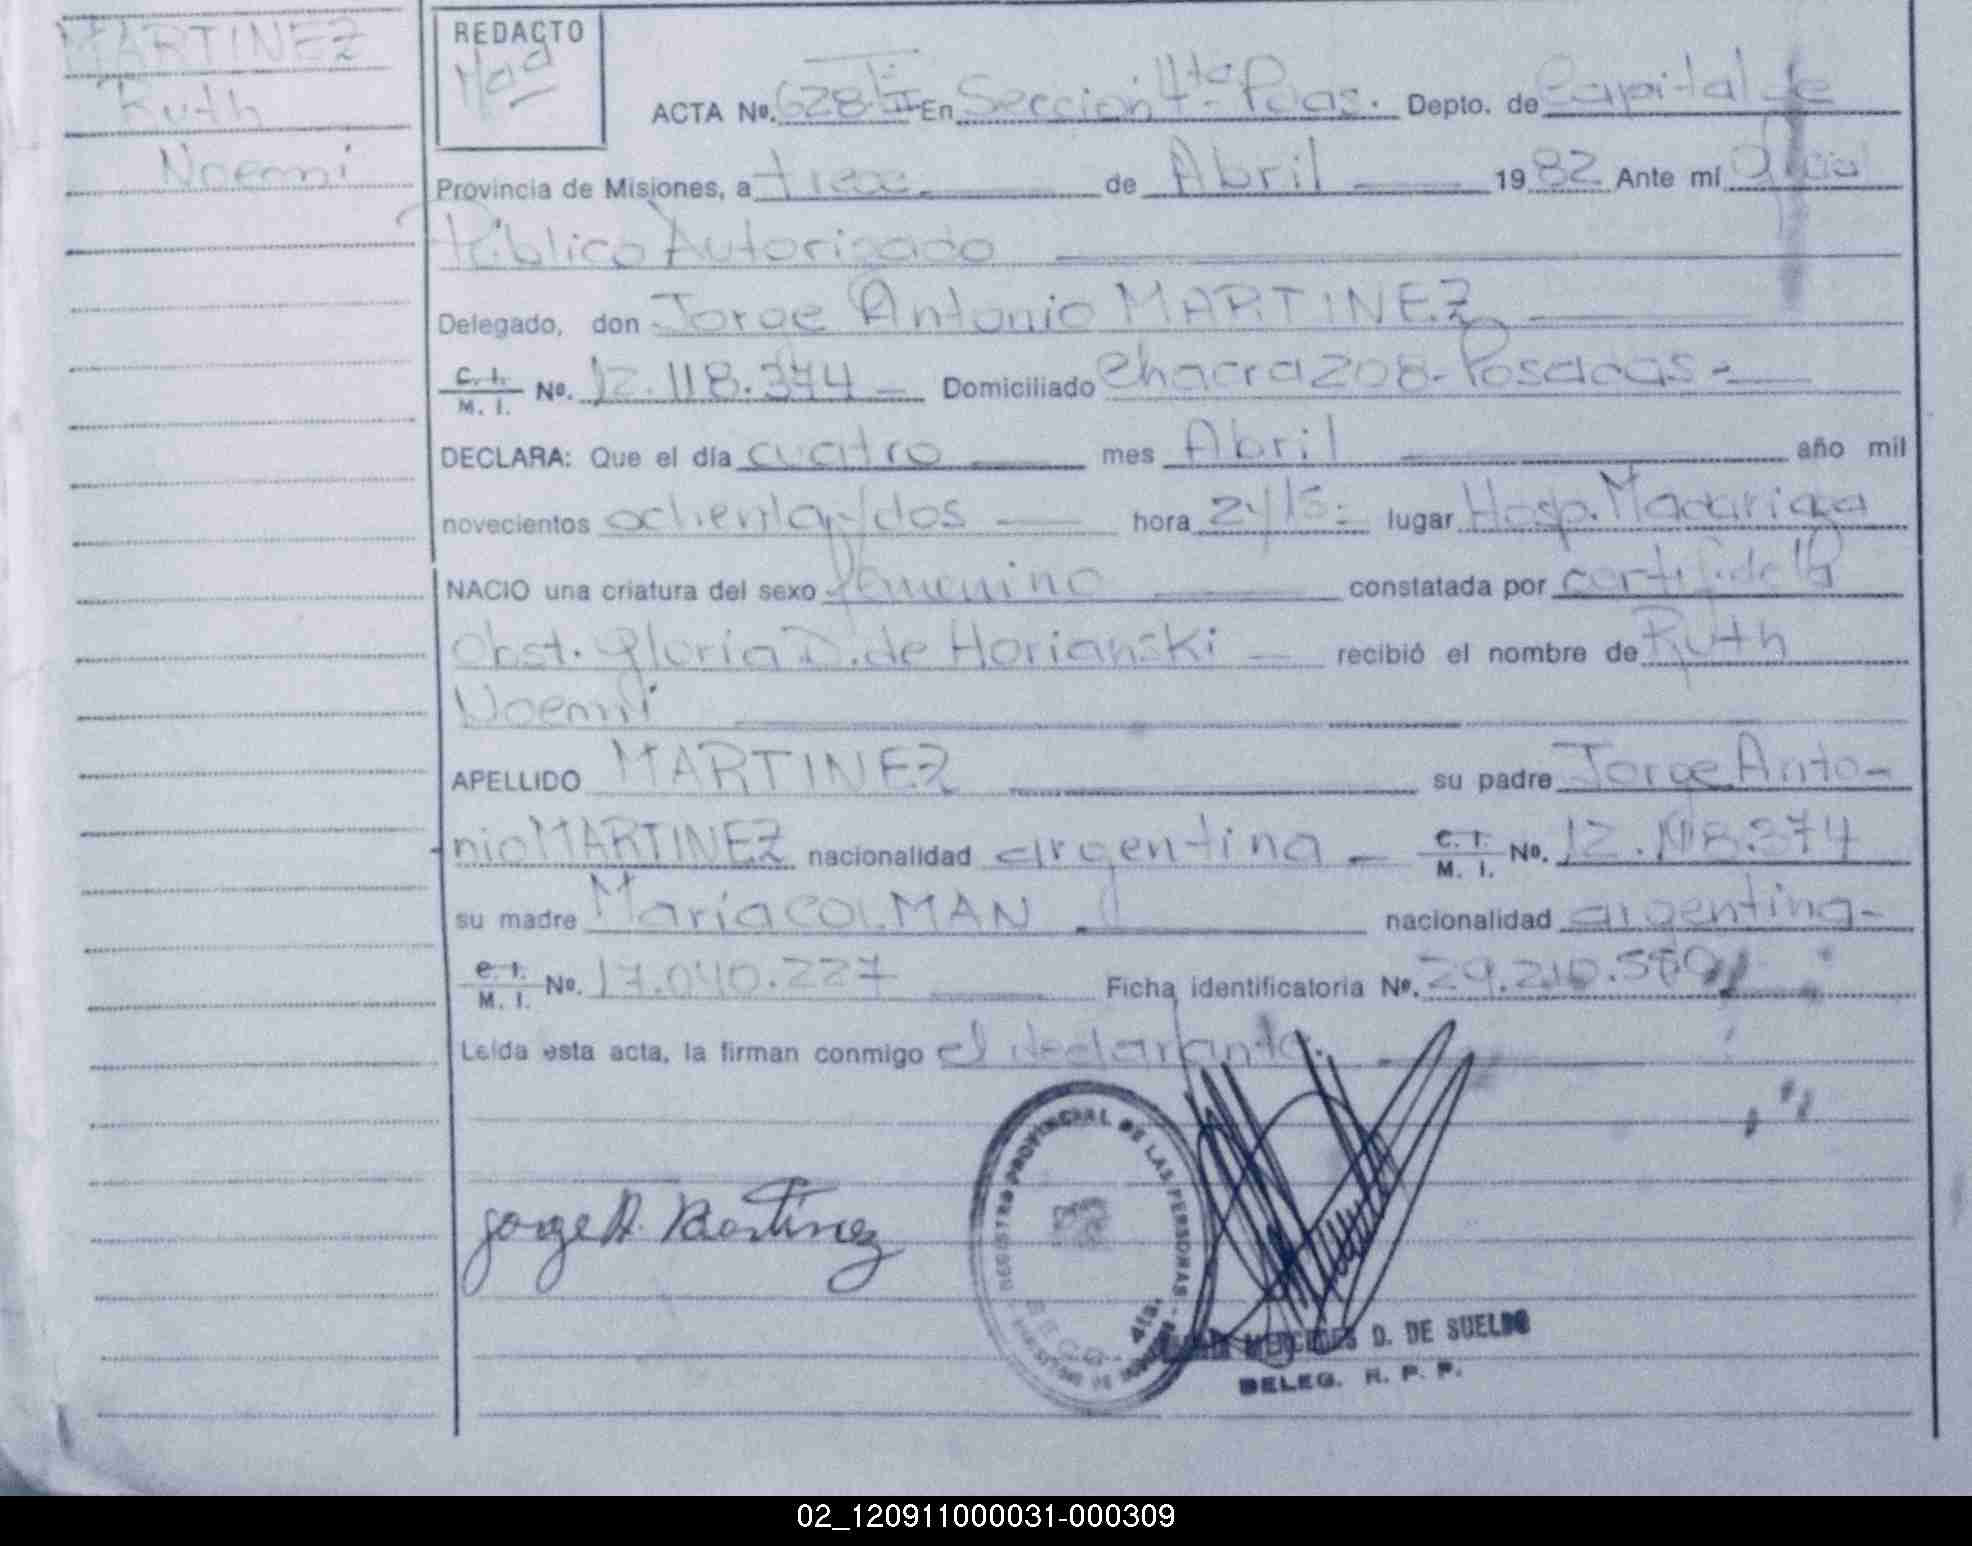 MARTINEZ
Ruth
Noemi
REDACTO
ACTA Nº. 628 En Seccion 4ta Pdas. Depto. de Capital de
Provincia de Misiones, a trece de Abril 1982 Ante mí Oficial
Público Autorizado
Delegado, don Jorge Antonio MARTINEZ
C. I.
M. I. Nº. 12.118.374 Domiciliado Chacra 208-Posadas-
DECLARA: Que el día cuatro mes Abril año mil
novecientos ochenta y dos hora lugar Hosp. Madariaga
NACIO una criatura del sexo femenino constatada por certif. de la
Obst. Gloria D. de Horianski recibió el nombre de Ruth
Noemi
APELLIDO MARTINEZ su padre Jorge Anto-
nio MARTINEZ nacionalidad argentina C. I.
M. I. Nº. 12.118.374
su madre María COLMAN nacionalidad argentina-
C. I.
M. I. Nº. 17.040.227 Ficha identificatoria Nº. 29.210.580
Leída esta acta, la firman conmigo el declarante.
REGISTRO PROVINCIAL DE LAS PERSONAS
SECC. 4ta.
Jorge A. Martinez
MERCEDES D. DE SUELDO
DELEG. R. P. P.
02_120911000031-000309